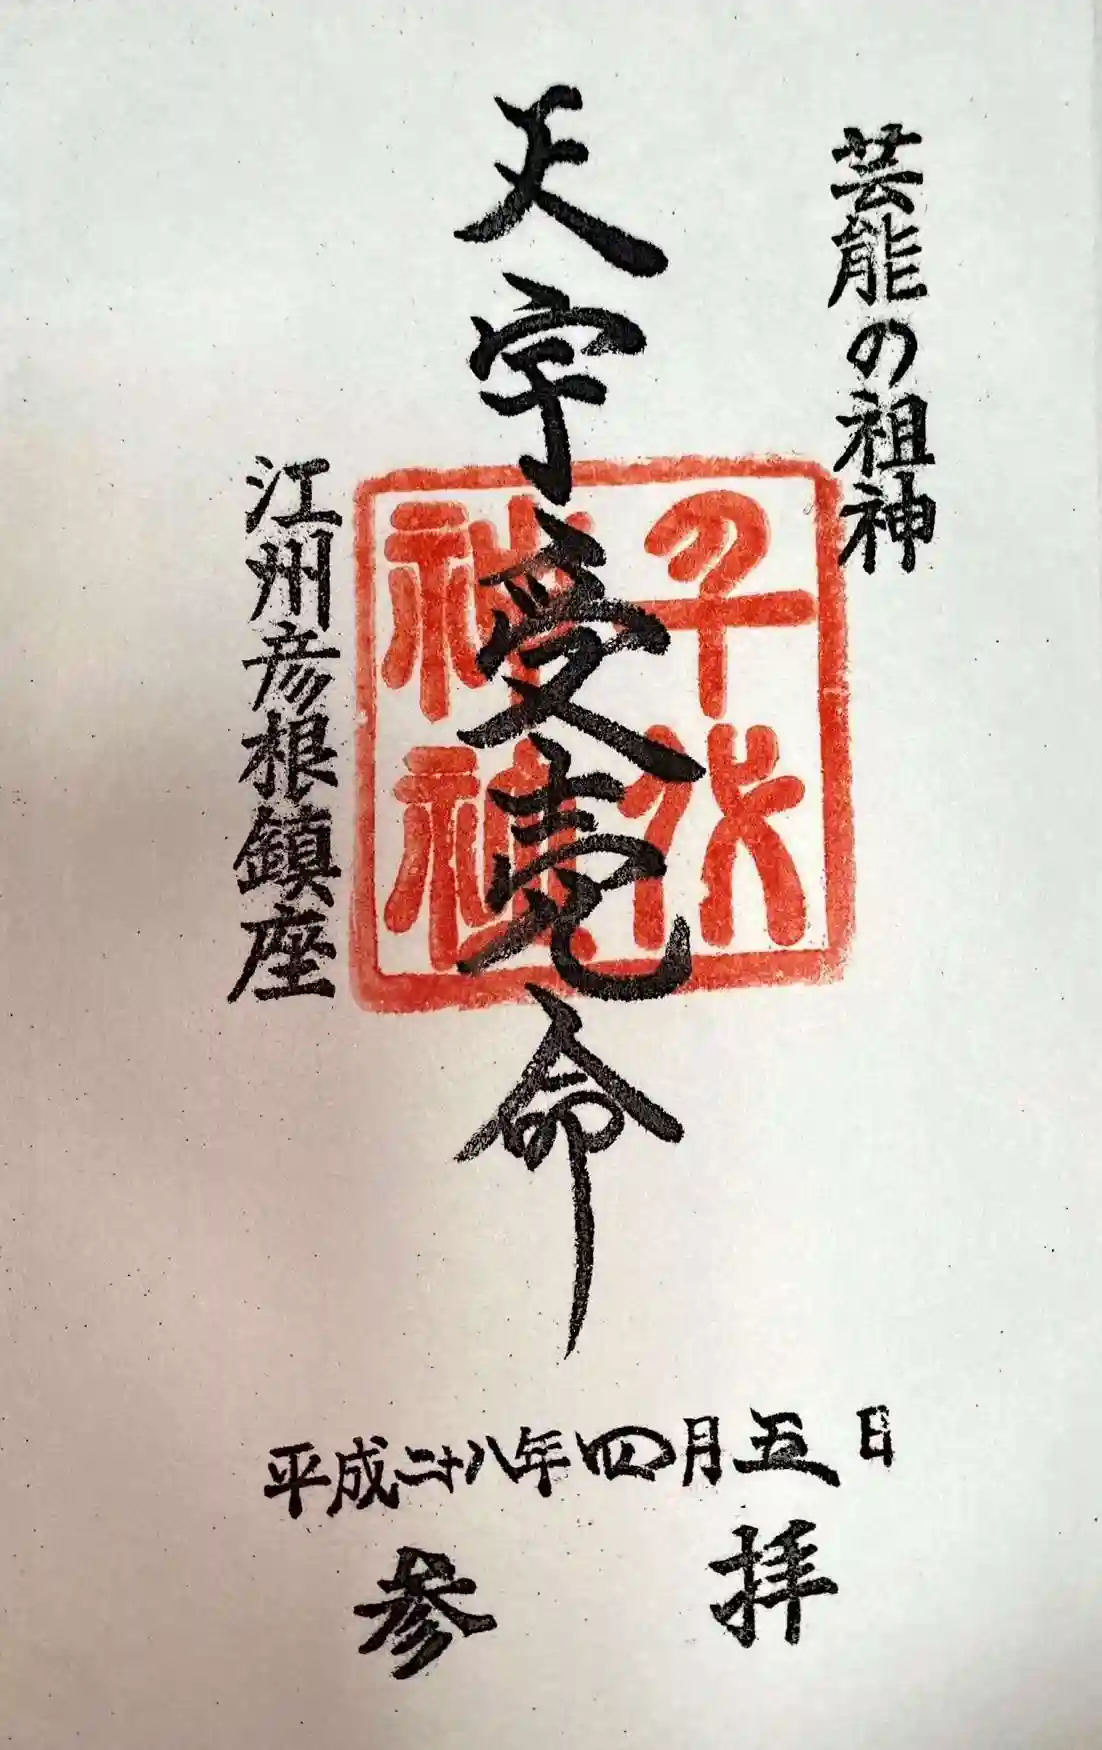 芸能の祖神
天宇受売命
千代
神社
江州彦根鎮座
平成二十八年四月五日
参拝